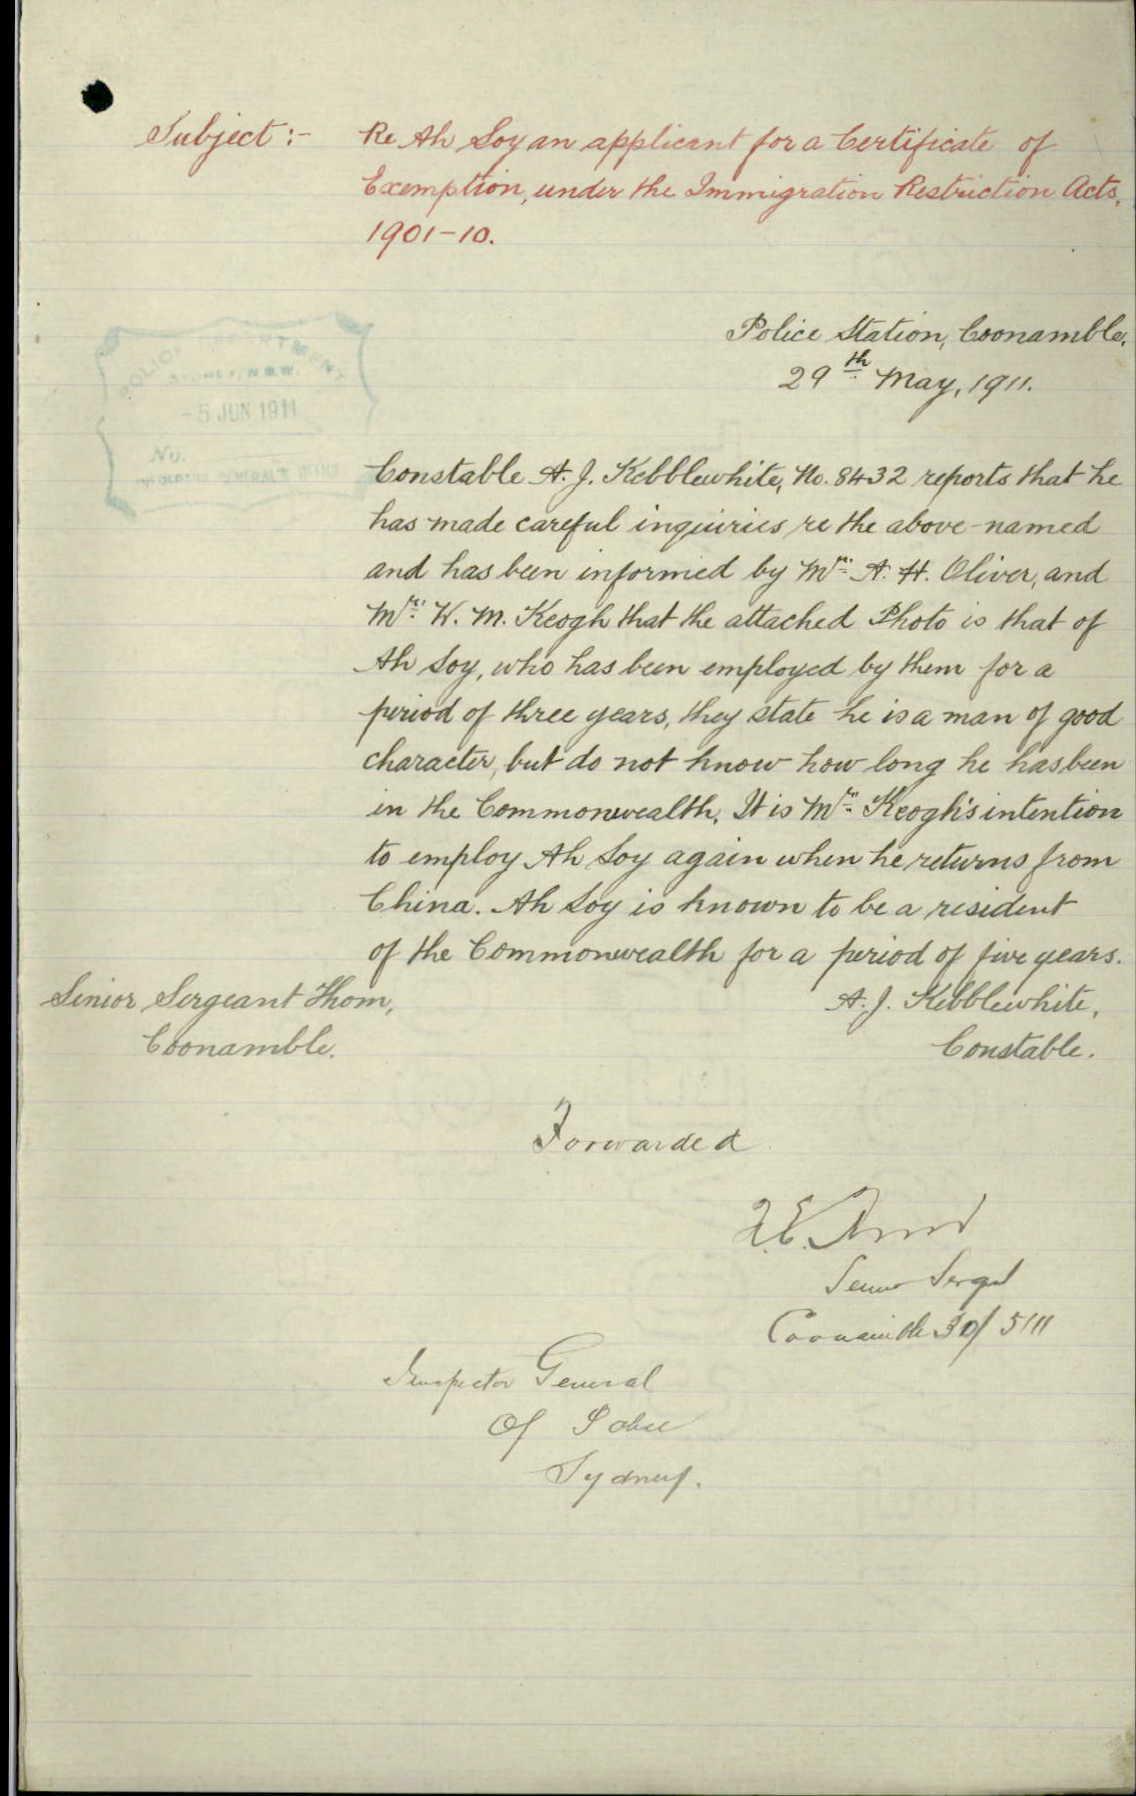 Subject :- Re Ah Soy an applicant for a Certificate of
Exemption, under the Immigration Restriction Acts,
1901-10.
Police Station, Coonamble.
29th May, 1911.
POLICE DEPARTMENT
SYDNEY, N.S.W.
-5 JUN 1911
No.
Constable A. J. Kebblewhite, No. 8432 reports that he
has made careful inquiries re the above-named
and has been informed by Mr. A. H. Oliver, and
Mr. W. M. Keogh that the attached Photo is that of
Ah Soy, who has been employed by them for a
period of three years, they state he is a man of good
character, but do not know how long he has been
in the Commonwealth. It is Mr. Keogh's intention
to employ Ah Soy again when he returns from
China. Ah Soy is known to be a resident
of the Commonwealth for a period of five years.
Senior Sergeant Thom,
Coonamble.
A. J. Kebblewhite,
Constable.
Forwarded
Senior Sergt
Coonamble 30/5/11
Inspector General
Of Police
Sydney.